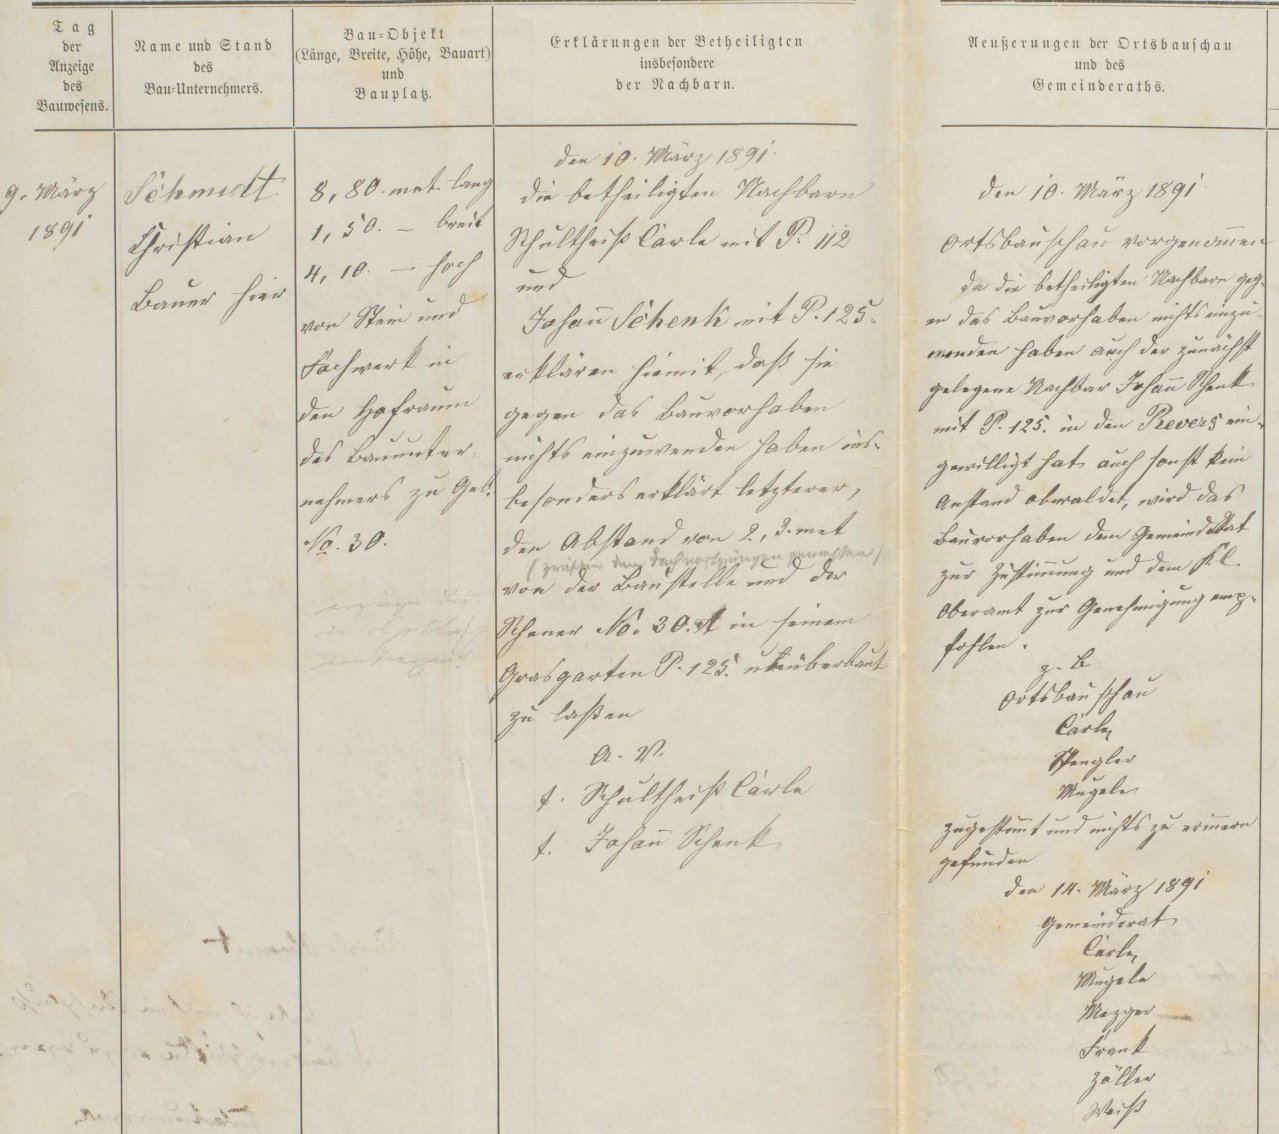 Tag
der
Anzeige
des
Bauwesens.
Name und Stand
des
Bau-Unternehmers.
Bau-Objekt
(Länge, Breite, Höhe, Bauart)
und
Bauplatz.
Erklärungen der Betheiligten
insbesondere
der Nachbarn.
Aeußerungen der Ortsbauschau
und des
Gemeinderaths.
9. März
1891
Schmidt
Christian
Bauer hier
8,80. met. lang
1,50. – breit
4,10. – hoch
von Stein und
Fachwerk in
den Hofraum
des Bauunter-
nehmers zu Geb.
No. 30.
den 10. März 1891.
die betheiligten Nachbarn
Schultheiß Carle mit P. 112
und
Johan̄ Schenk mit P. 125.
erklären hiemit, daß sie
gegen das Bauvorhaben
nichts einzuwenden haben ins-
besonders erklärt letzterer,
den Abstand von 2,3. met
(zwischen den Dachvorsprüngen gemessen)
von der Baustelle und der
Scheuer No. 30. A in seinem
Grasgarten P. 125. unüberbaut
zu laßen
A. V.
t. Schultheiß Carle
t. Johan̄ Schenk
den 10. März 1891.
Ortsbauschau vorgenom̄en
da die betheiligten Nachbarn geg-
en das Bauvorhaben nichts einzu-
wenden haben auch der zunächst
gelegene Nachbar Johan̄ Schenk
mit P. 125. in den Revers ein-
gewilligt hat, auch sonst kein
Anstand obwaldet, wird das
Bauvorhaben dem Gemeinderat
zur Zustim̄ung und dem Kl.
Oberamt zur Genehmigung emp-
fohlen.
z. B
Ortsbauschau
Carle,
Spengler
Mugele
zugestim̄t und nichts zu erinern
gefunden
den 14. März 1891
Gemeinderat
Carle,
Mugele
Mezger
Frank
Zoller
Weiß